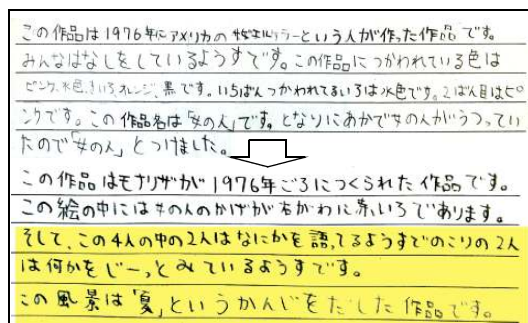 この作品は1976年にアメリカの という人が作った作品です。
みんなはなしをしているようすです。この作品につかわれている色は
ピンク、水色、きいろ、オレンジ、黒です。いちばんつかわれてるいろは水色です。2ばん目はピ
ンクです。この作品名は「女の人」です。となりにあかで女の人がうつってい
たので「女の人」とつけました。
この作品はモナリザが1976年ごろにつくられた作品です。
この絵の中には女の人のかげが右がわに赤いろであります。
そして、この4人の中の2人はなにかを語ってるようすでのこりの2人
は何かをじーっとみているようすです。
この風景は「夏」というかんじをだした作品です。